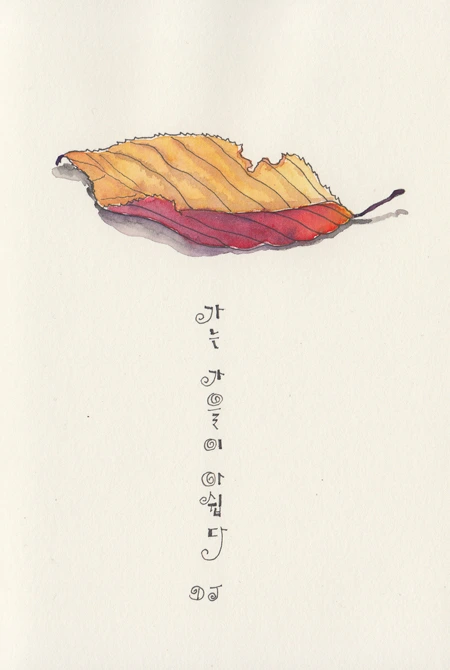 가는 가을이 아쉽다
DJ